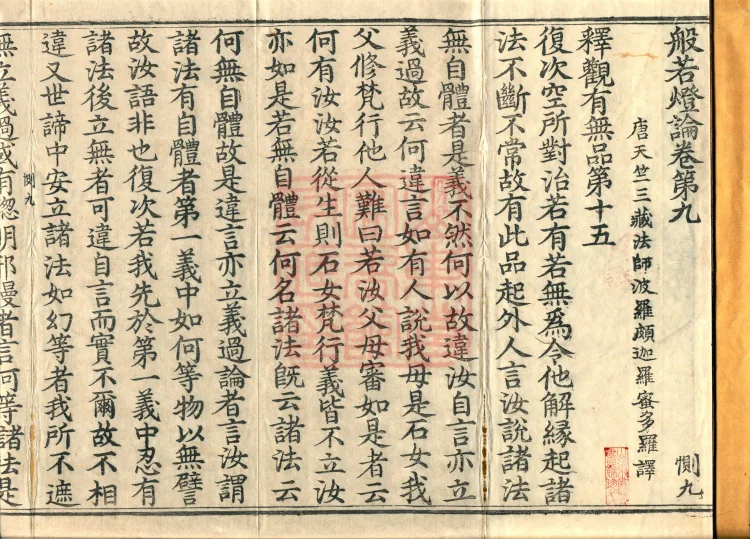 般若燈論卷第九
惻九
唐天竺三藏法師波羅頗迦羅蜜多羅譯
釋觀有無品第十五
復次空所對治若有若無爲令他解緣起諸
法不斷不常故有此品起外人言汝說諸法
無自體者是義不然何以故違汝自言亦立
義過故云何違言如有人說我母是石女我
父修梵行他人難曰若汝父母審如是者云
何有汝汝若從生則石女梵行義皆不立汝
亦如是若無自體云何名諸法旣云諸法云
何無自體故是違言亦立義過論者言汝謂
諸法有自體者第一義中如何等物以無譬
故汝語非也復次若我先於第一義中忍有
諸法後立無者可違自言而實不爾故不相
違又世諦中安立諸法如幻等者我所不遮
惻九
無立義過或有惚明邪慢者言何等諸法是